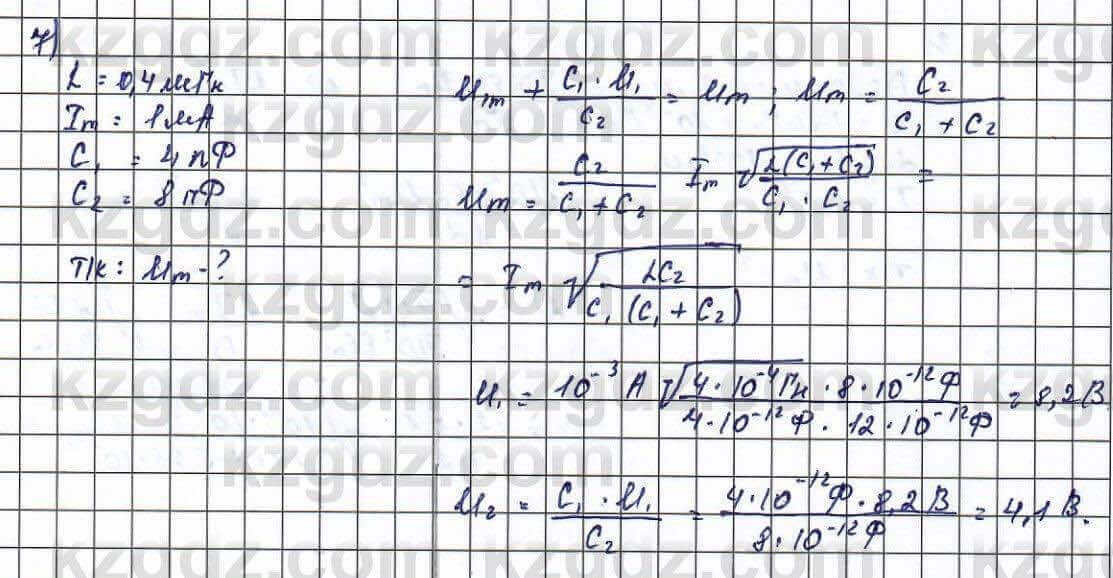 7)
L = 0,4 мГн
Im = 1 мА
C₁ = 4 пФ
C₂ = 8 пФ
Т/к: Um - ?
Um + C₁ · U₁ / C₂ = Um ; Um = C₂ / C₁ + C₂
Um = C₂ / C₁ + C₂ Im √ L(C₁ + C₂) / C₁ · C₂ =
= Im √ LC₂ / C₁ (C₁ + C₂)
U₁ = 10⁻³ А √ 4 · 10⁻⁴ Гн · 8 · 10⁻¹² Ф / 4 · 10⁻¹² Ф · 12 · 10⁻¹² Ф = 8,2 В
U₂ = C₁ · U₁ / C₂ = 4 · 10⁻¹² Ф · 8,2 В / 8 · 10⁻¹² Ф = 4,1 В.
kzgdz.com
kzgdz.com
kzgdz.com
kzgdz.com
kzgdz.com
kzgdz.com
kzgdz.com
kzgdz.com
kzgdz.com
kzgdz.com